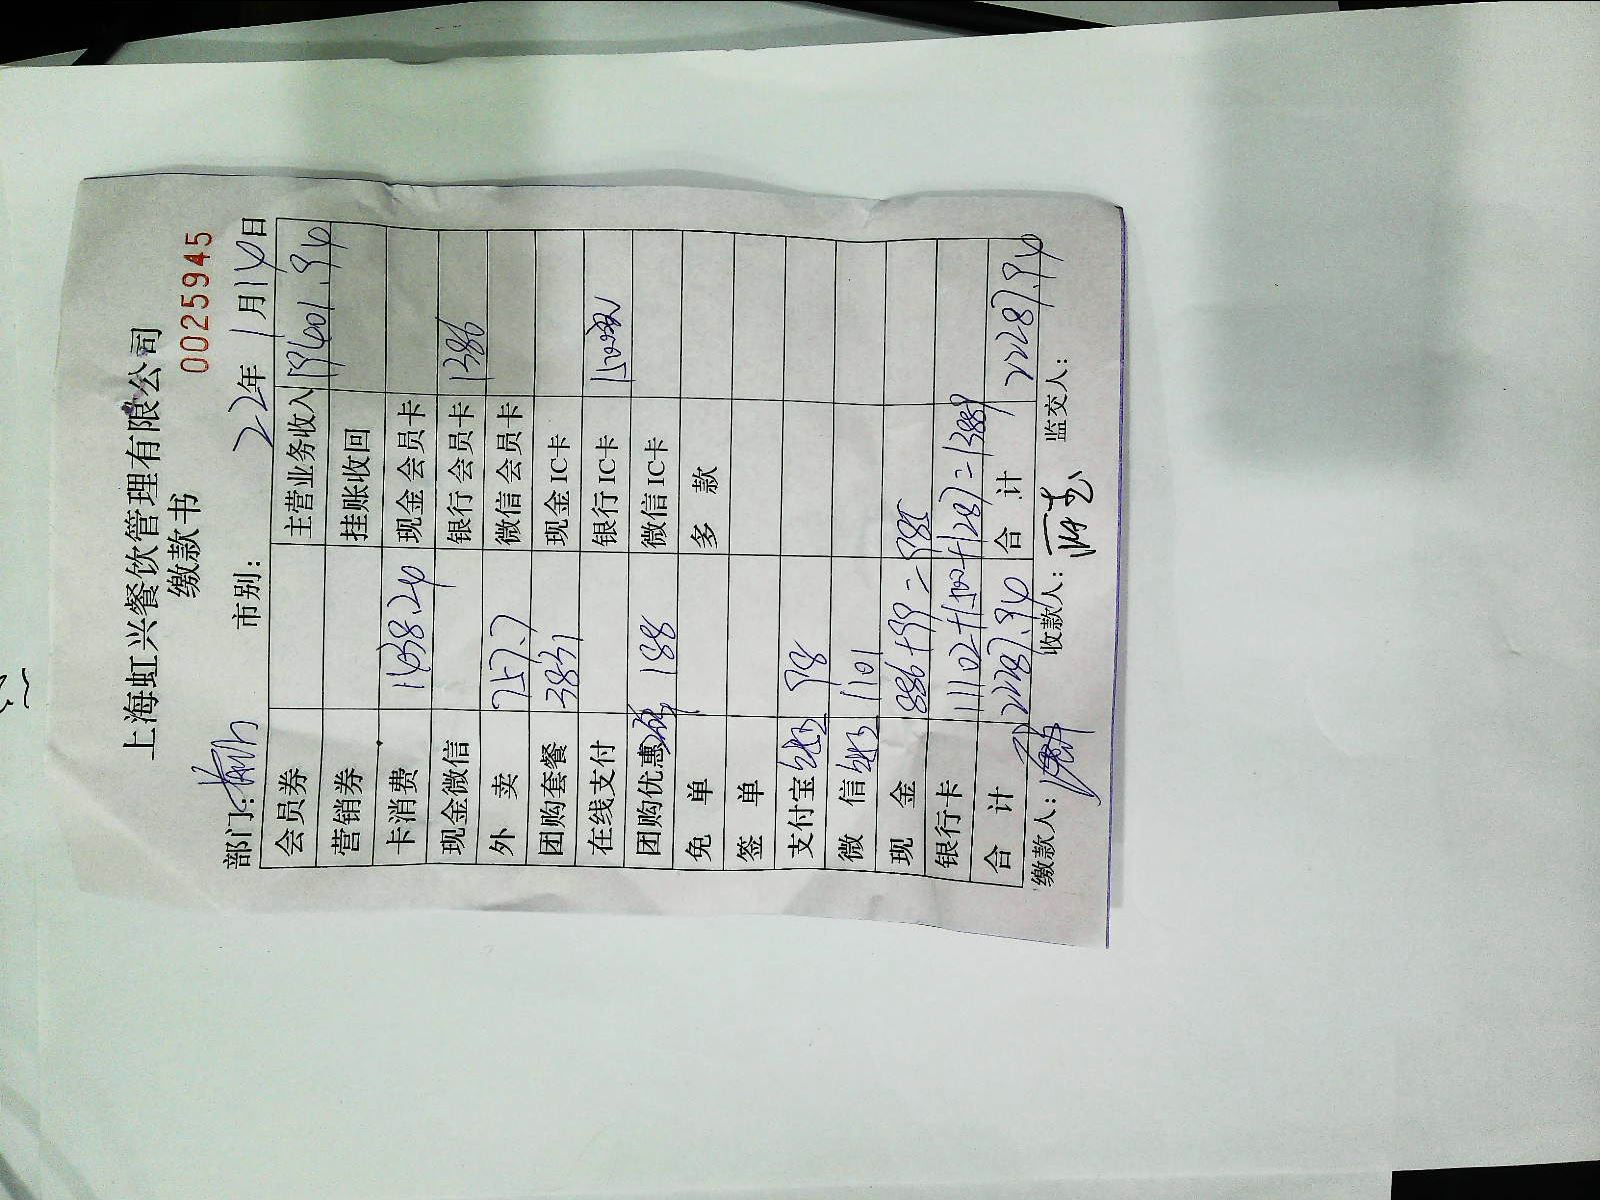 上海虹兴餐饮管理有限公司
缴款书 0025945
部门: 市别: 22年1月14日
会员券 主营业务收入 19401.94
营销券 挂账收回
卡消费 1438.24 现金会员卡
现金微信 银行会员卡 1386
外 卖 757.7 微信会员卡
团购套餐 3831 现金IC卡
在线支付 银行IC卡 1500
团购优惠 188 微信IC卡
免 单 多 款
签 单
支付宝 98
微 信 1101
现 金 886+99=985
银行卡 11102+1500+1287=13889
合 计 22287.94 合 计 22287.94
缴款人: 收款人: 监交人: